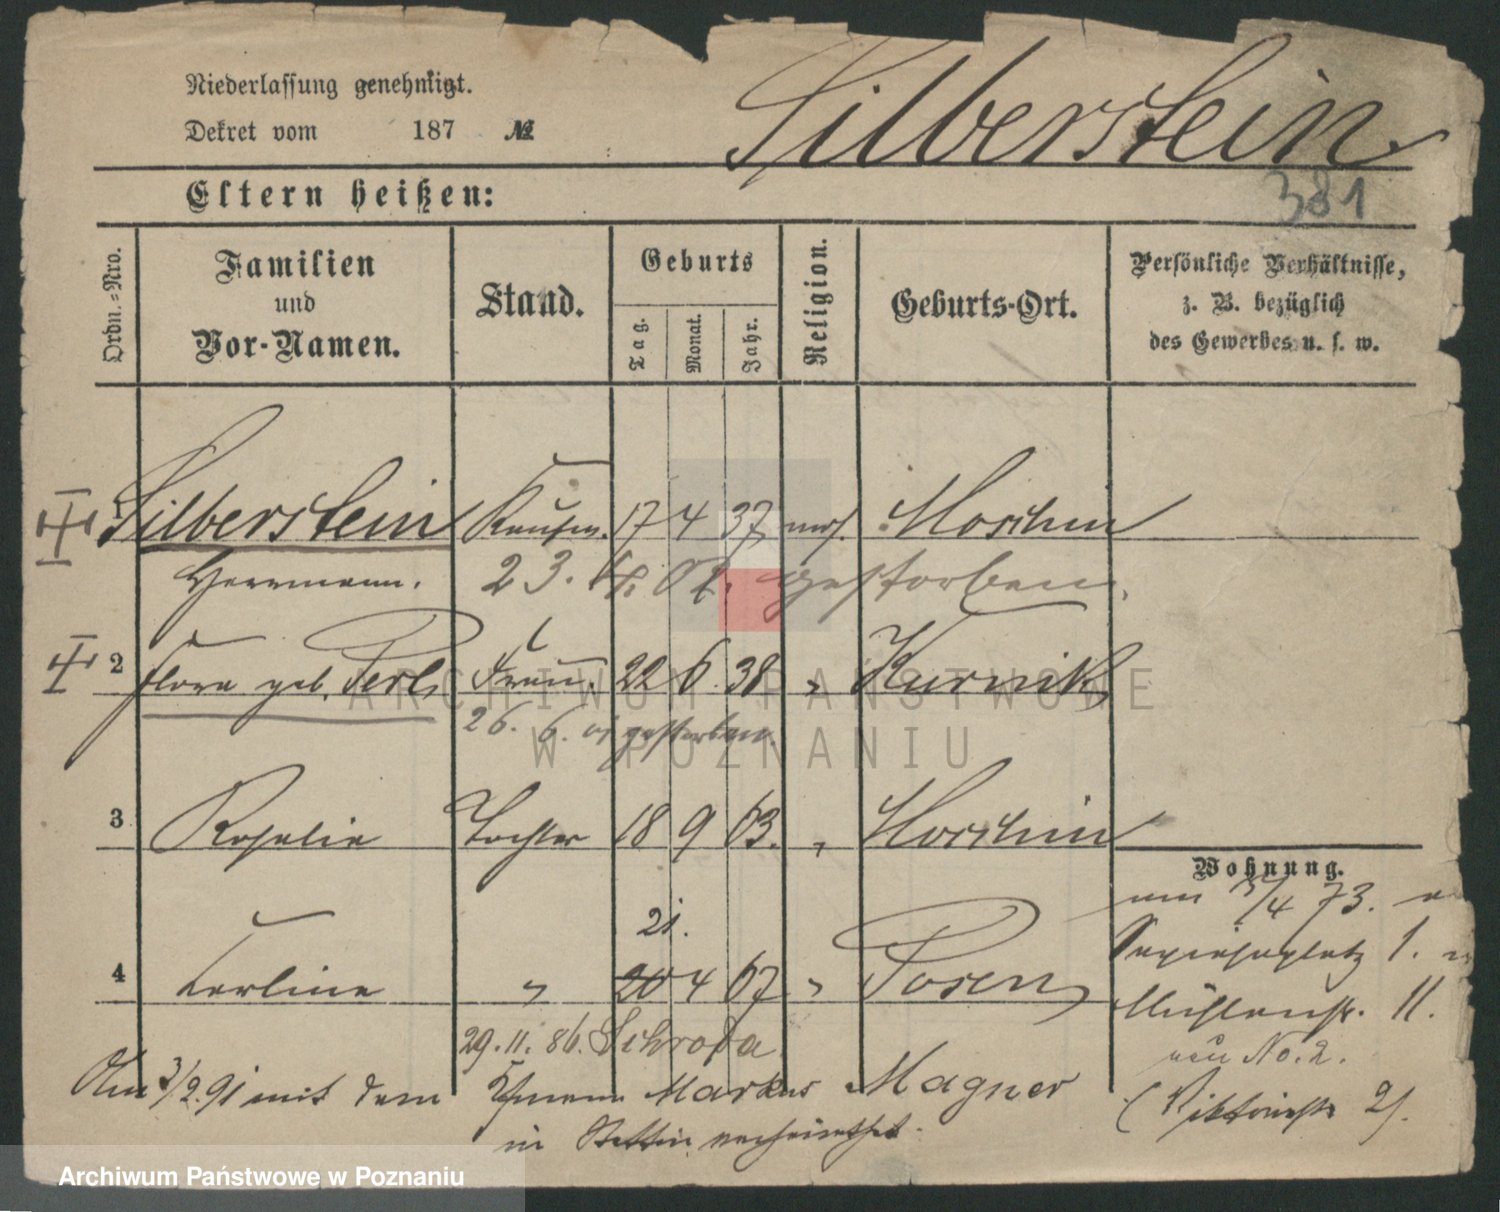 Niederlassung genehmigt.
Silberstein
Dekret vom 187 №
381
Eltern heißen:
Ordn.-Nro.
Familien und Vor-Namen.
Stand.
Geburts
Tag.
Monat.
Jahr.
Religion.
Geburts-Ort.
Persönliche Verhältnisse, z. B. bezüglich des Gewerbes u. s. w.
1 Silberstein Kaufm. 17 4 37 mos. Moschin
Herrmann. 23. 02. gestorben.
2 Flora geb. Perl, Frau. 22 6 38 " Kurnik
26. 6. 01 gestorben.
3 Rosalie Tochter 18 9 63. " Moschin
Wohnung.
21.
4 " 20 4 67 " Posen
/4 73.
Sapiehaplatz 1.
Mühlenstr. 11.
29. 11. 86. Schroda
neu No. 2.
Am 3/2. 91 mit dem Markus Magner
(Viktoriastr 2).
in Stettin verheirathet.
ARCHIWUM PAŃSTWOWE
W POZNANIU
Archiwum Państwowe w Poznaniu